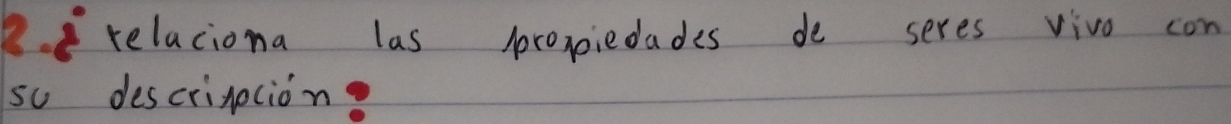 2.¿ relaciona las propiedades de seres vivo con
su descripción?